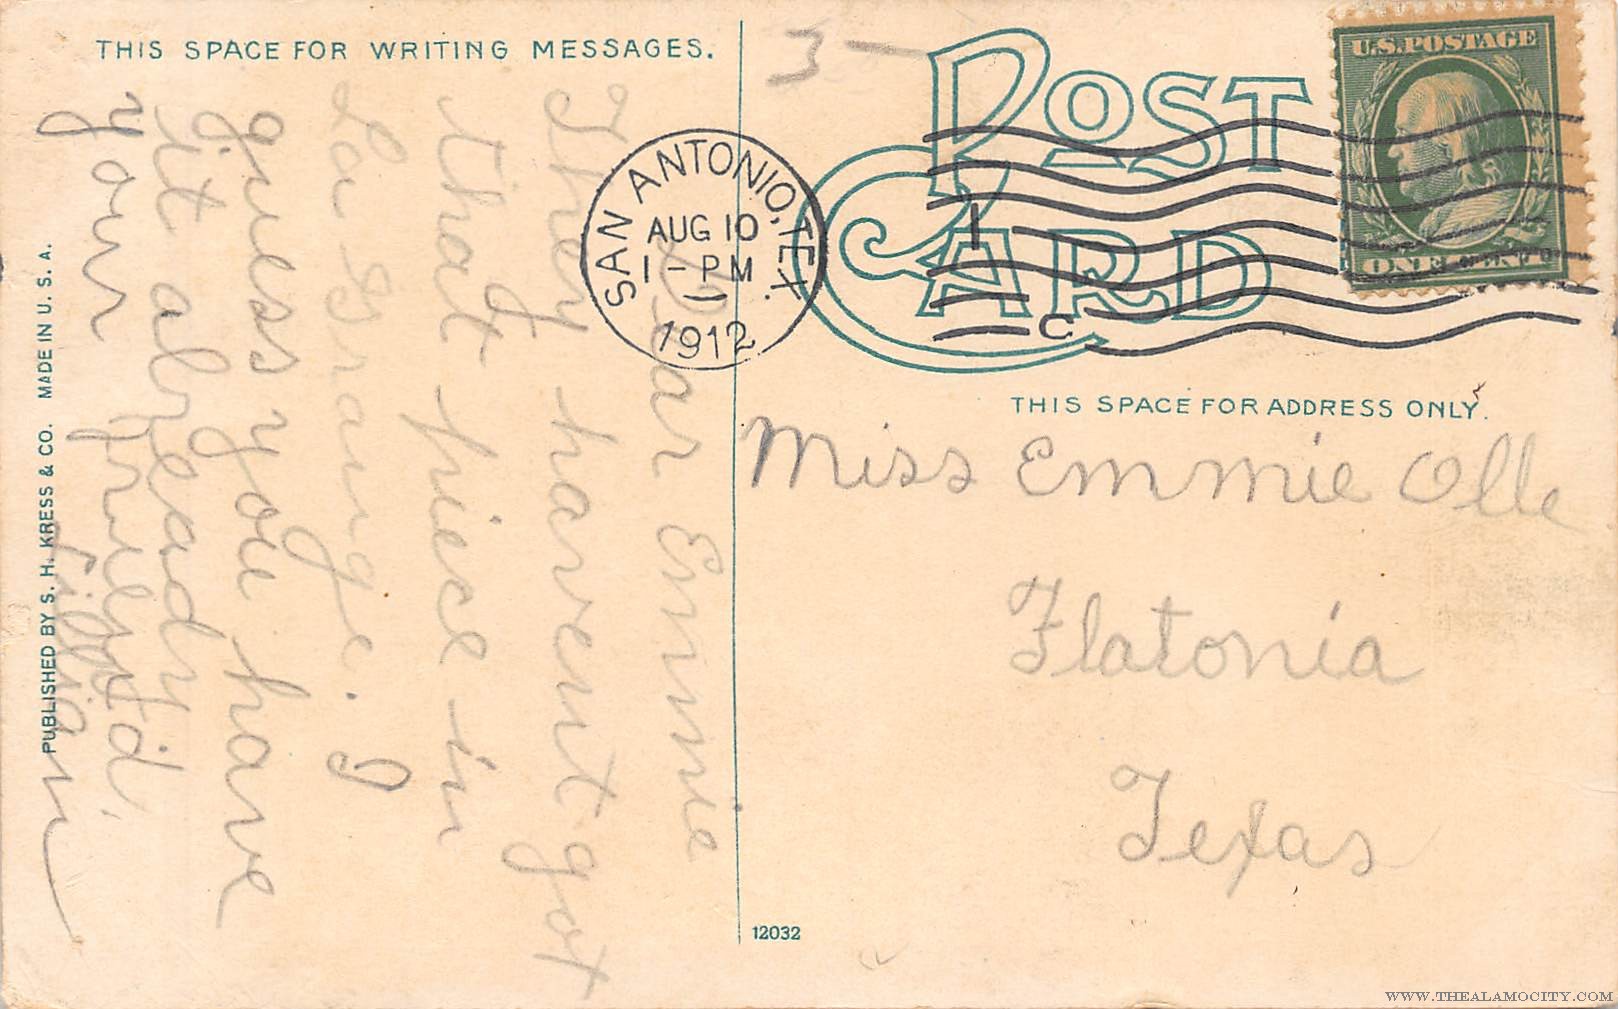 THIS SPACE FOR WRITING MESSAGES.
Dear Emmie
They havent got
that piece in
La Grange. I
guess you have
it already
your friend,
Lillian
PUBLISHED BY S. H. KRESS & CO. MADE IN U. S. A.
3 —
POST
CARD
SAN ANTONIO, TEX.
AUG 10
1 - PM
1912
1
C
U.S. POSTAGE
ONE CENT
THIS SPACE FOR ADDRESS ONLY.
Miss Emmie Olle
Flatonia
Texas
12032
WWW.THEALAMOCITY.COM